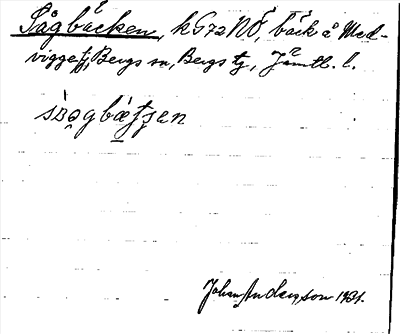 Sågbäcken, kG72NÖ, bäck å Med-
viggefj, Bergs sn, Bergs tg, Jämtl. l.
Johan Anderson 1931.